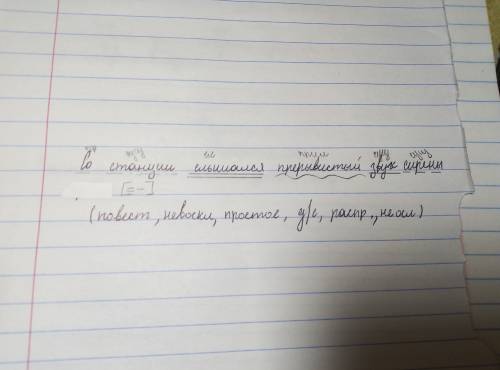 сущ гл прил сущ сущ
Со станции слышался прерывистый звук сирены
[= —]
(повест, невоскл, простое, д/с, распр., неосл)